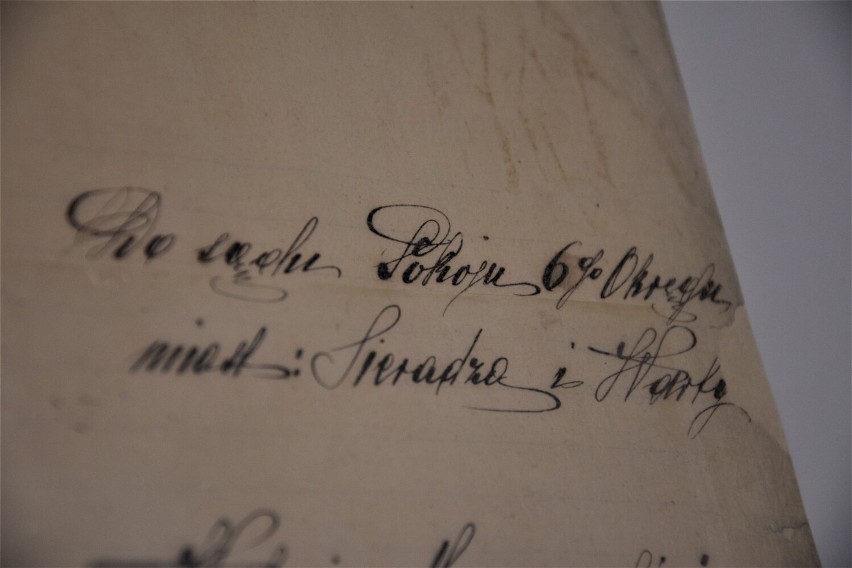 Do sądu Pokoju 6go Okręgu
miast: Sieradza i Warty